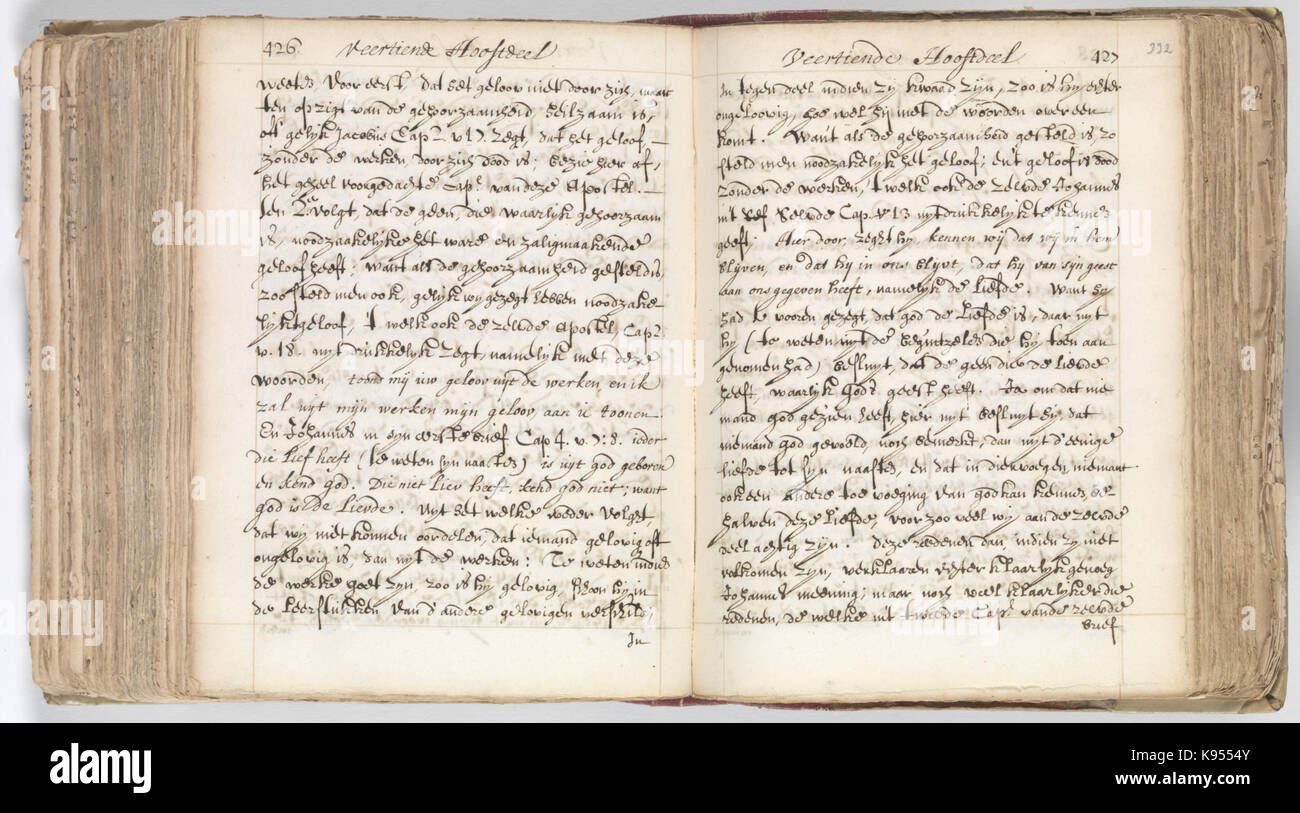 426 Veertiende Hoofdeel
weeten, Voor eerst, dat het geloov niet door zich, maar
ten opzigt van de gehoorzaamheid, heilzaam is,
oft gelijk Jacobus Cap. 2 v. 17. zegt, dat het geloof,
zonder de werken, door zich dood is; bezie hier af,
het geheel voorgedachte Cap.l van deze Apostel.
Ten 2e volgt, dat de geen, die waarlijk gehoorzaam
is, noodzaakelijke het ware en zaligmaakende
geloof heeft; want als de gehoorzaamheid gesteld is,
zoo steld men ook, gelijk wy gezegt hebben noodzake-
lijk 't geloof, 't welk ook de zelvde Apostel, Cap. 2
v. 18. uyt drukkelijk zegt, namelijk met deze
woorden, toond mij uw geloov uyt de werken, en ik
zal uyt mijn werken mijn geloov aan u toonen.
En Johannes in syn eerste brief Cap 4. v. 7: 8. ieder
die lief heeft (te weten syn naasten) is uyt god geboren
en kend god. Die niet liev heeft, kend god niet; want
god is de Lievde. Uyt het welke weder volgt,
dat wy niet konnen oordelen, dat iemand gelovig oft
ongelovig is, dan uyt de werken: Te weten indien
de werke goet zyn, zoo is hy gelovig, schoon hy in
de leerstukken van d'andere gelovigen verschild;
In
Veertiende Hoofdeel 427
332
In tegendeel indien zy kwaad zijn, zoo is hy echter
ongeloovig, hoe wel hij met de woorden over een
komt. Want als de gehoorzaamheid gesteld is zo
steld men noodzakelyk het geloof; en 't geloof is dood
zonder de werken, 't welk ook de zelvde Johannes
uit Selvde Cap. v 13 uytdrukkelijk te kennen
geeft; Hier door, zeght hy, kennen wij dat wij in hem
blijven, en dat hy in ons blyvt, dat hy van syn geest
aan ons gegeven heeft, namelijk de liefde. Want hy
had te vooren gezegt, dat god de Liefde is, daar uyt
hy (te weten uyt de beginzelen die hy toen aan
genomen had) besluyt, dat de geen die de lievde
heeft, waarlyk Gods geest heeft. Ja om dat nie
mand god gezien heeft, hier uyt besluyt hy dat
niemand god gevoeld, noch bemerkt, dan uyt d'eenige
liefde tot syn naasten, en dat in diervoegen niemant
ook een andere toe voeging van god kan kennen, be-
halven deze liefde, voor zoo veel wij aan de zelvde
deelachtig zijn. Deze redenen dan, indien zy niet
volkomen zyn, verklaaren echter klaarlyk genoeg
Johannes meening; maar noch veel klaarlijker die
redenen, de welke uit tweede Cap.l van de zelvde
brief
alamy
alamy
Image ID: K9554Y
www.alamy.com